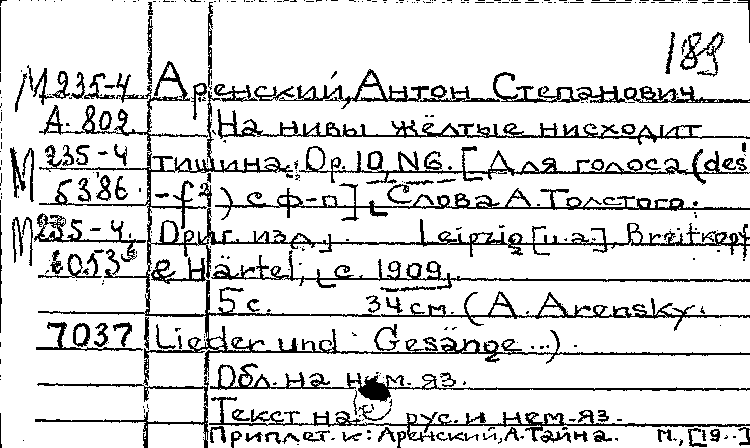 189
М 235-4 Аренский, Антон Степанович
А. 802. На нивы жёлтые нисходит
М 235-4 тишина. Ор. 10, N6. [Для голоса (des'
5386. -f²) с ф-п]. Слова А. Толстого.
М 235-4. Ориг. изд. Leipzig [u.a.], Breitkopf
& Härtel, [с. 1909].
5 с. 34 см. (A. Arensky.
7037 Lieder und Gesänge...).
Обл. на нем. яз.
Текст на рус. и нем. яз.
Приплет. к: Аренский, А. Тайна. М., [19..]